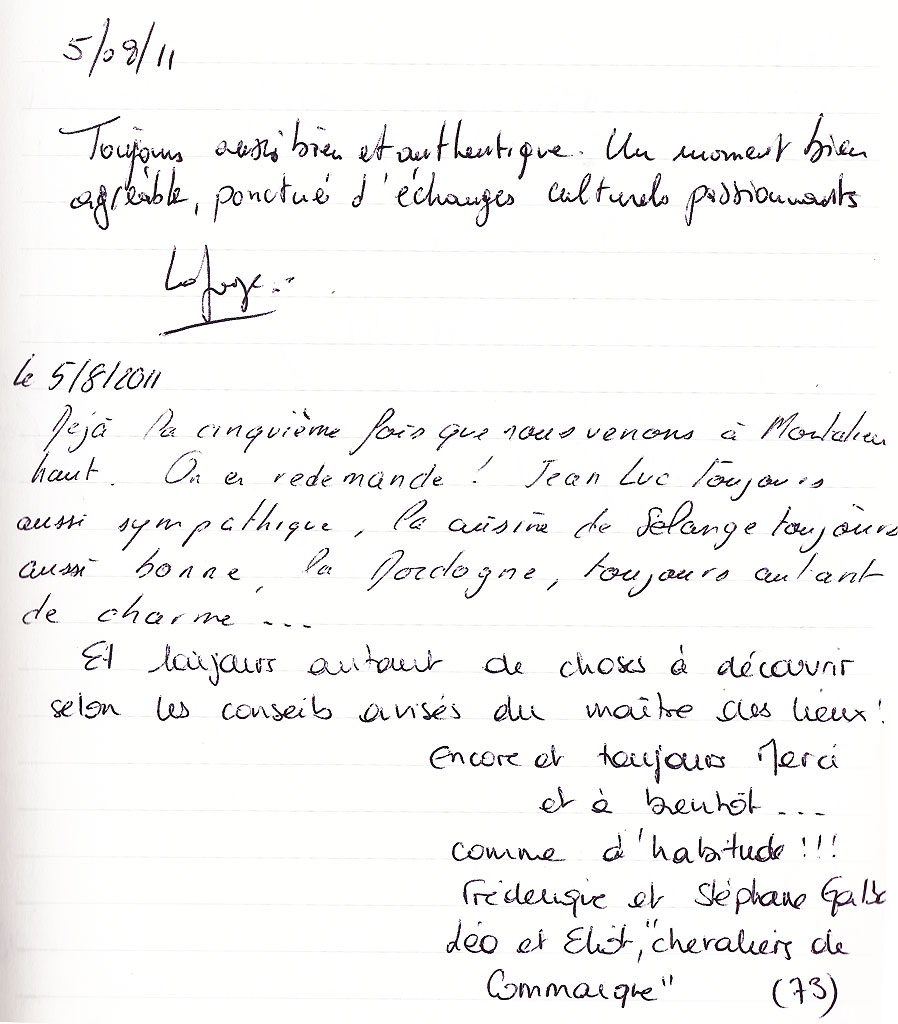 5/08/11
Toujours aussi bien et authentique. Un moment bien
agréable, ponctué d'échanges culturels passionnants
le 5/8/2011
Déjà la cinquième fois que nous venons à
haut. On en redemande ! Jean Luc toujours
aussi sympathique, la cuisine de Solange toujours
aussi bonne, la Dordogne, toujours autant
de charme ...
Et toujours autant de choses à découvrir
selon les conseils avisés du maître des lieux !
Encore et toujours Merci
et à bientôt ...
comme d'habitude !!!
Frédérique et Stéphane
Léo et Eliot, "chevaliers de
Commarque" (73)